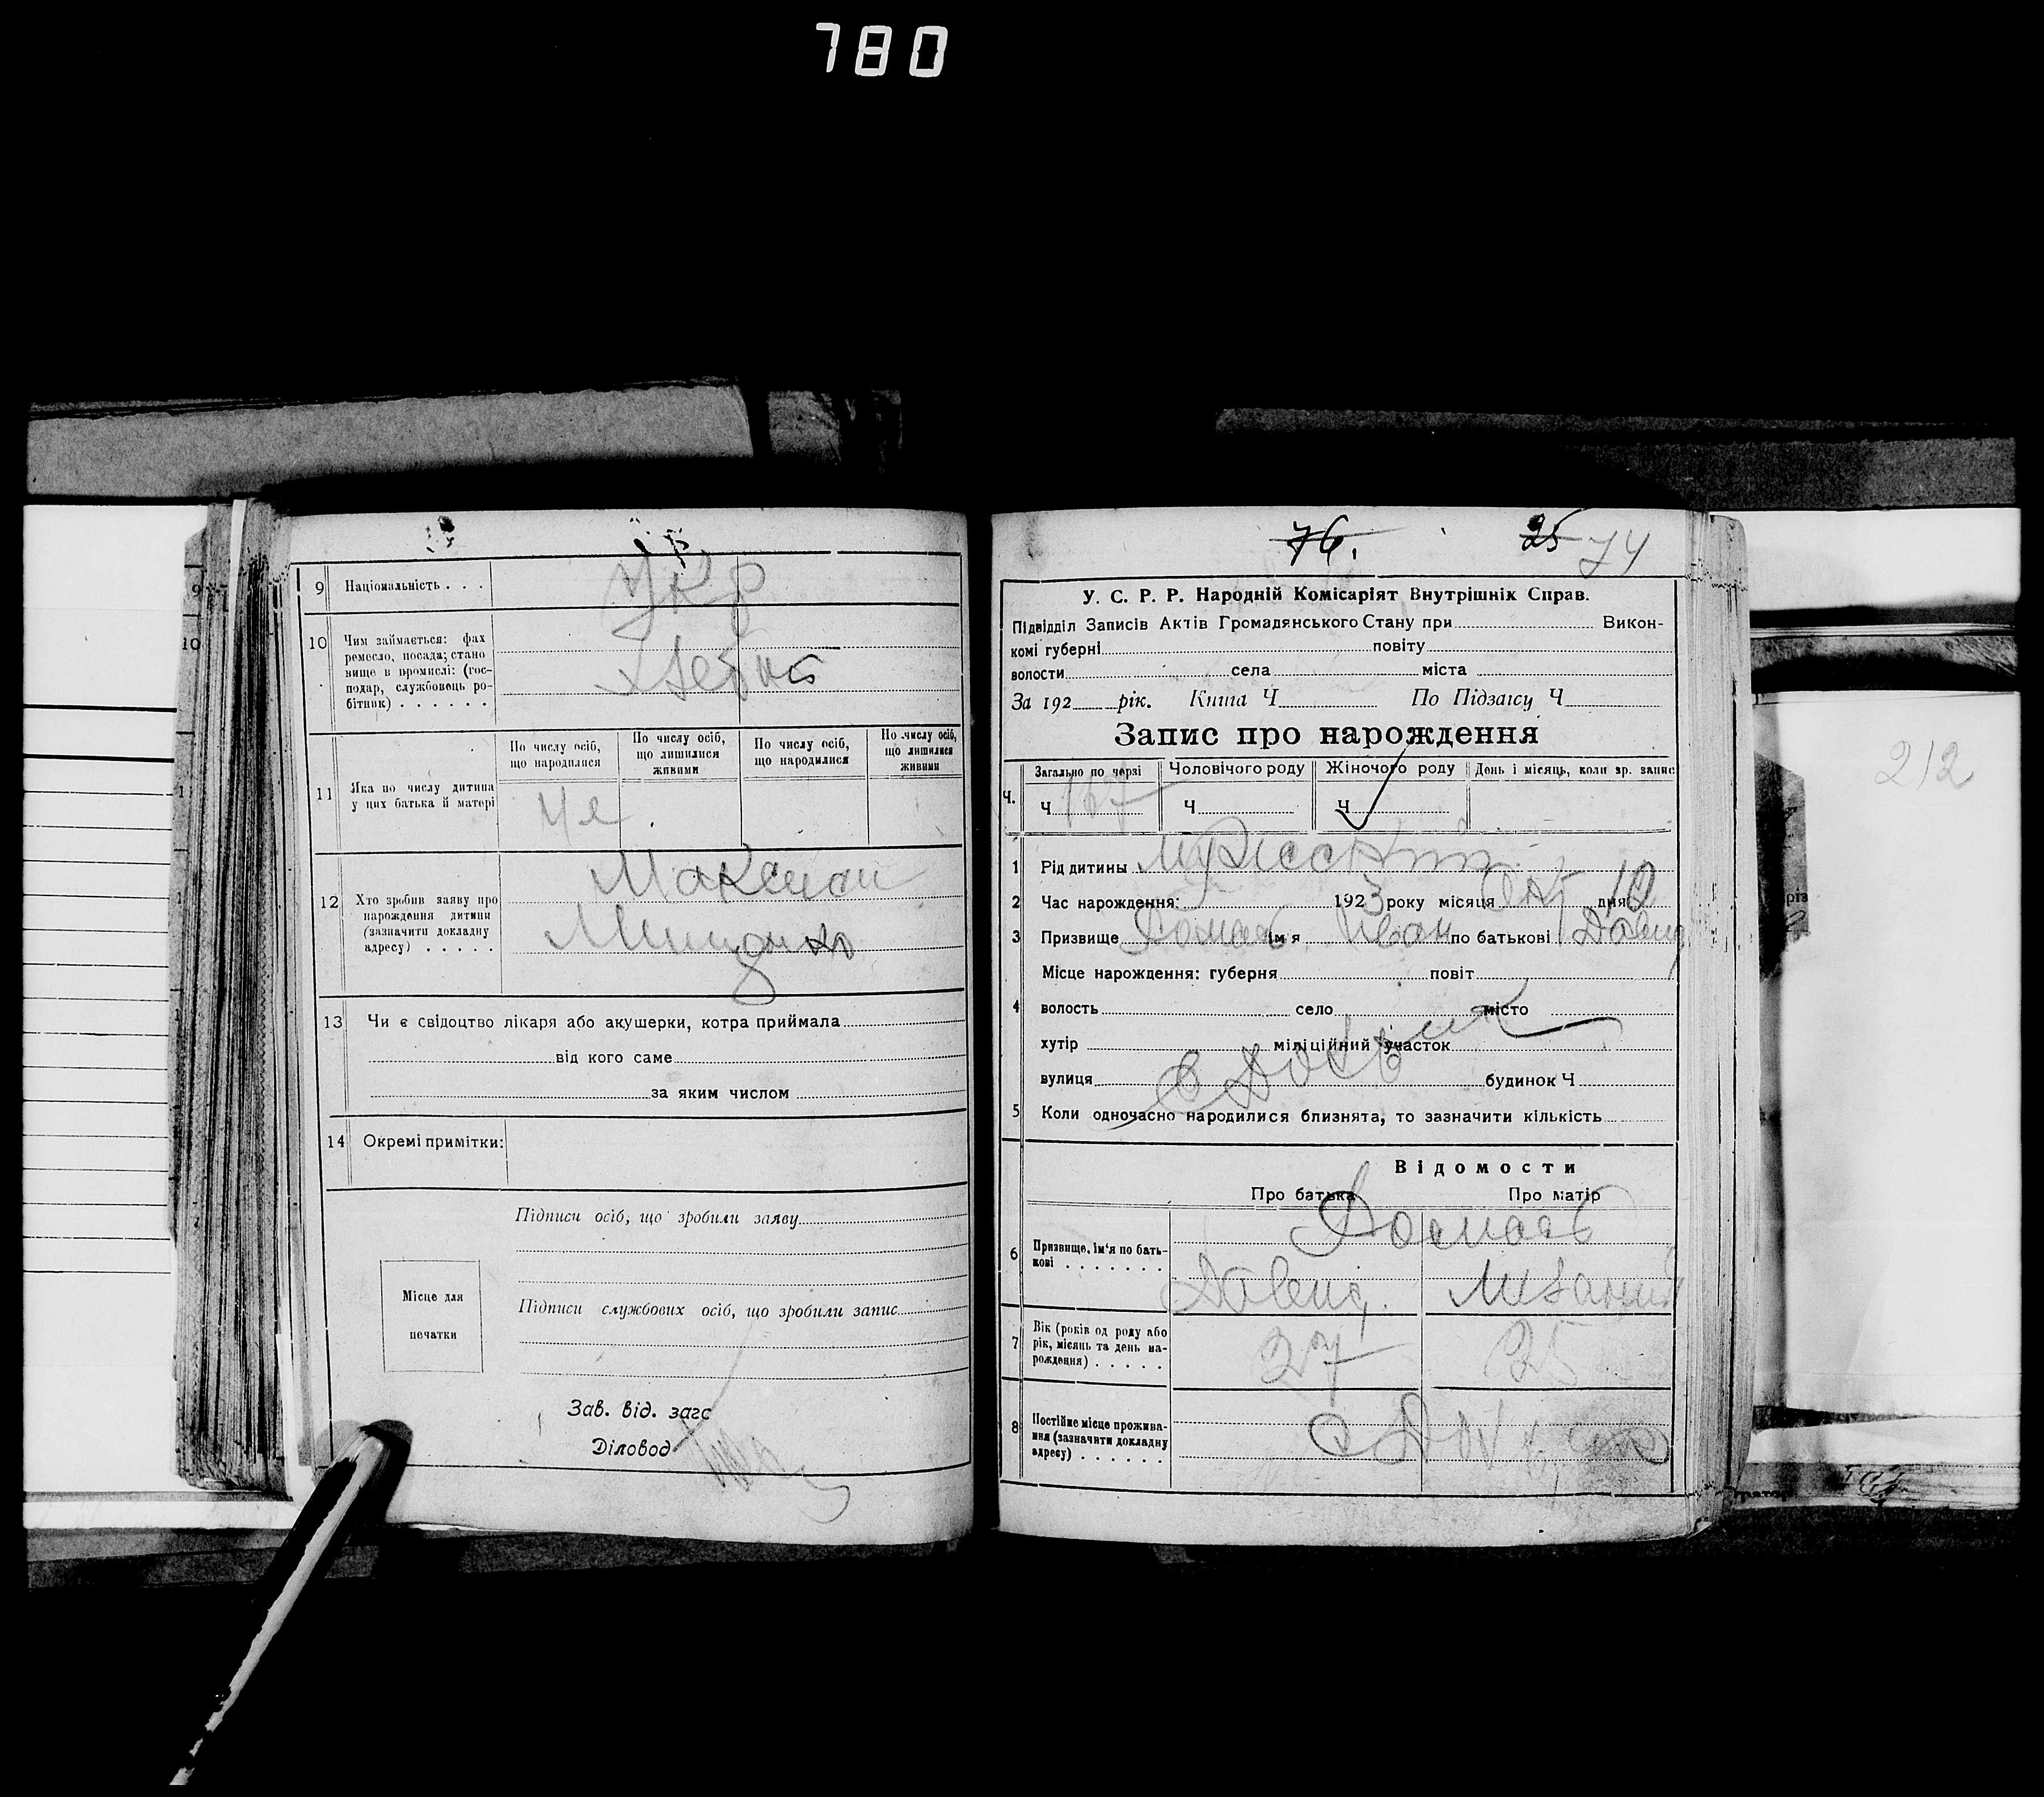 780
9 Національність . . .
Укр
10 Чим займається: фах
ремесло, посада; стано
вище в промислі: (гос-
подар, службовець ро-
бітник) . . . . . .
По числу осіб, що народилися
По числу осіб, що лишилися живими
По числу осіб, що народилися
По числу осіб, що лишилися живими
11 Яка по числу дитина
у цих батька й матері
12 Хто зробив заяву про
нарождення дитини
(зазначити докладну
адресу) . . . . .
Максим
13 Чи є свідоцтво лікаря або акушерки, котра приймала
від кого саме
за яким числом
14 Окремі примітки:
Підписи осіб, що зробили заяву
Місце для
печатки
Підписи службових осіб, що зробили запис
Зав. від. загс
Діловод
76. 25 74
У. С. Р. Р. Народній Комісаріят Внутрішніх Справ.
Підвідділ Записів Актів Громадянського Стану при Викон-
комі губерні повіту
волости села міста
За 192 рік. Книга Ч По Підзагсу Ч
Запис про нарождення
Ч. Загально по черзі Чоловічого роду Жіночого роду День і місяць, коли зр. запис
Ч 167 Ч Ч
1 Рід дитины
2 Час нарождення: 1923 року місяця Окт дня 10
3 Призвище ім'я Иван по батькові Давид
Місце нарождення: губерня повіт
4 волость село місто
хутір міліційний участок
вулиця будинок Ч
5 Коли одночасно народилися близнята, то зазначити кількість
Відомости
Про батька Про матір
6 Призвище, ім'я по бать-
кові . . . . . . .
Давид
7 Вік (років од роду або
рік, місяць та день на-
рождення) . . . . .
27 25
8 Постійне місце прожива-
ння (зазначити докладну
адресу) . . . . . .
212